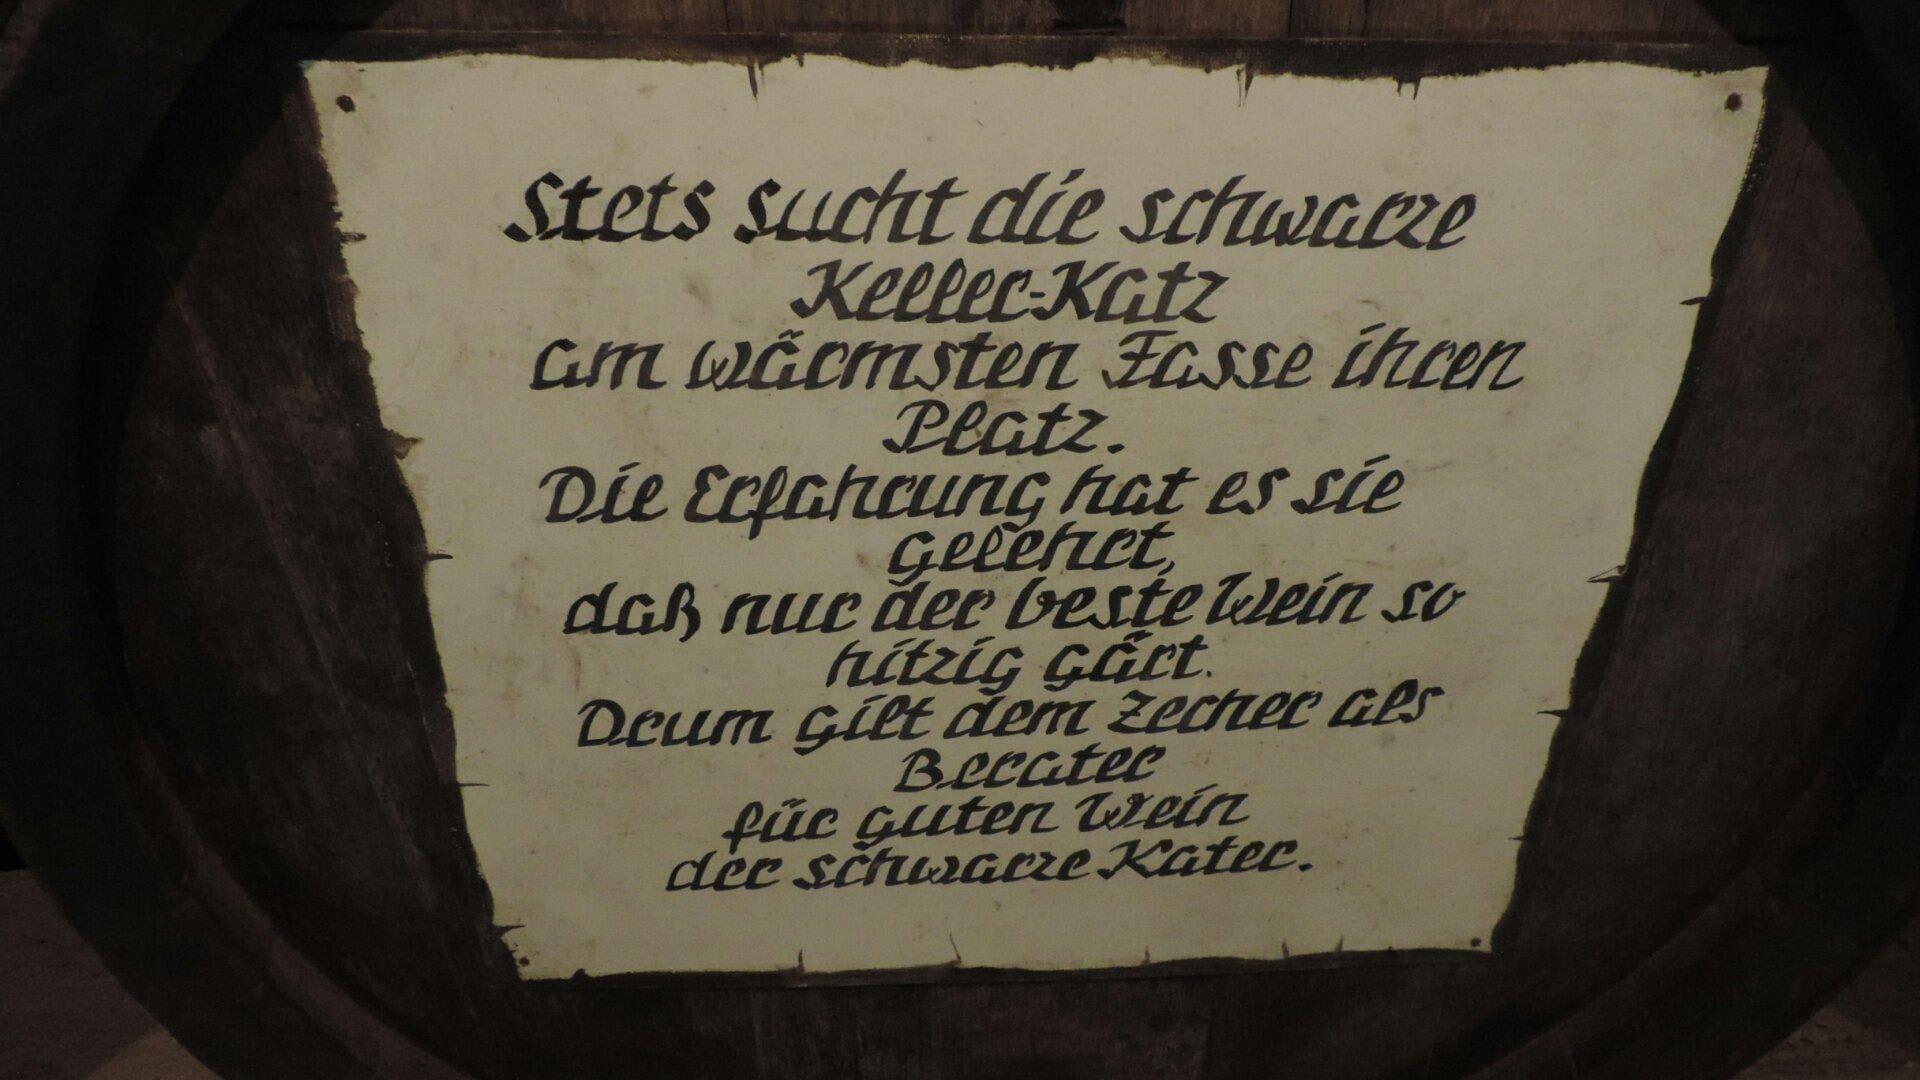 Stets sucht die schwarze
Keller-Katz
am wärmsten Fasse ihren
Platz.
Die Erfahrung hat es sie
gelehrt,
daß nur der beste Wein so
hitzig gärt.
Drum gilt dem Zecher als
Berater
für guten Wein
der schwarze Kater.